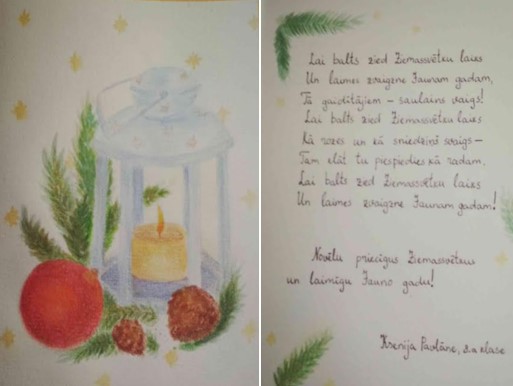 Lai balts zied Ziemassvētku laiks
Un laimes zvaigzne Jaunam gadam,
Tā gaidītājiem – saulains vaigs!
Lai balts zied Ziemassvētku laiks
Kā rozes un kā sniedziņš svaigs –
Tam klāt tu piespiedies kā radam,
Lai balts zied Ziemassvētku laiks
Un laimes zvaigzne Jaunam gadam!
Novēlu priecīgus Ziemassvētkus
un laimīgu Jauno gadu!
Ksenija Pavlāne, klase